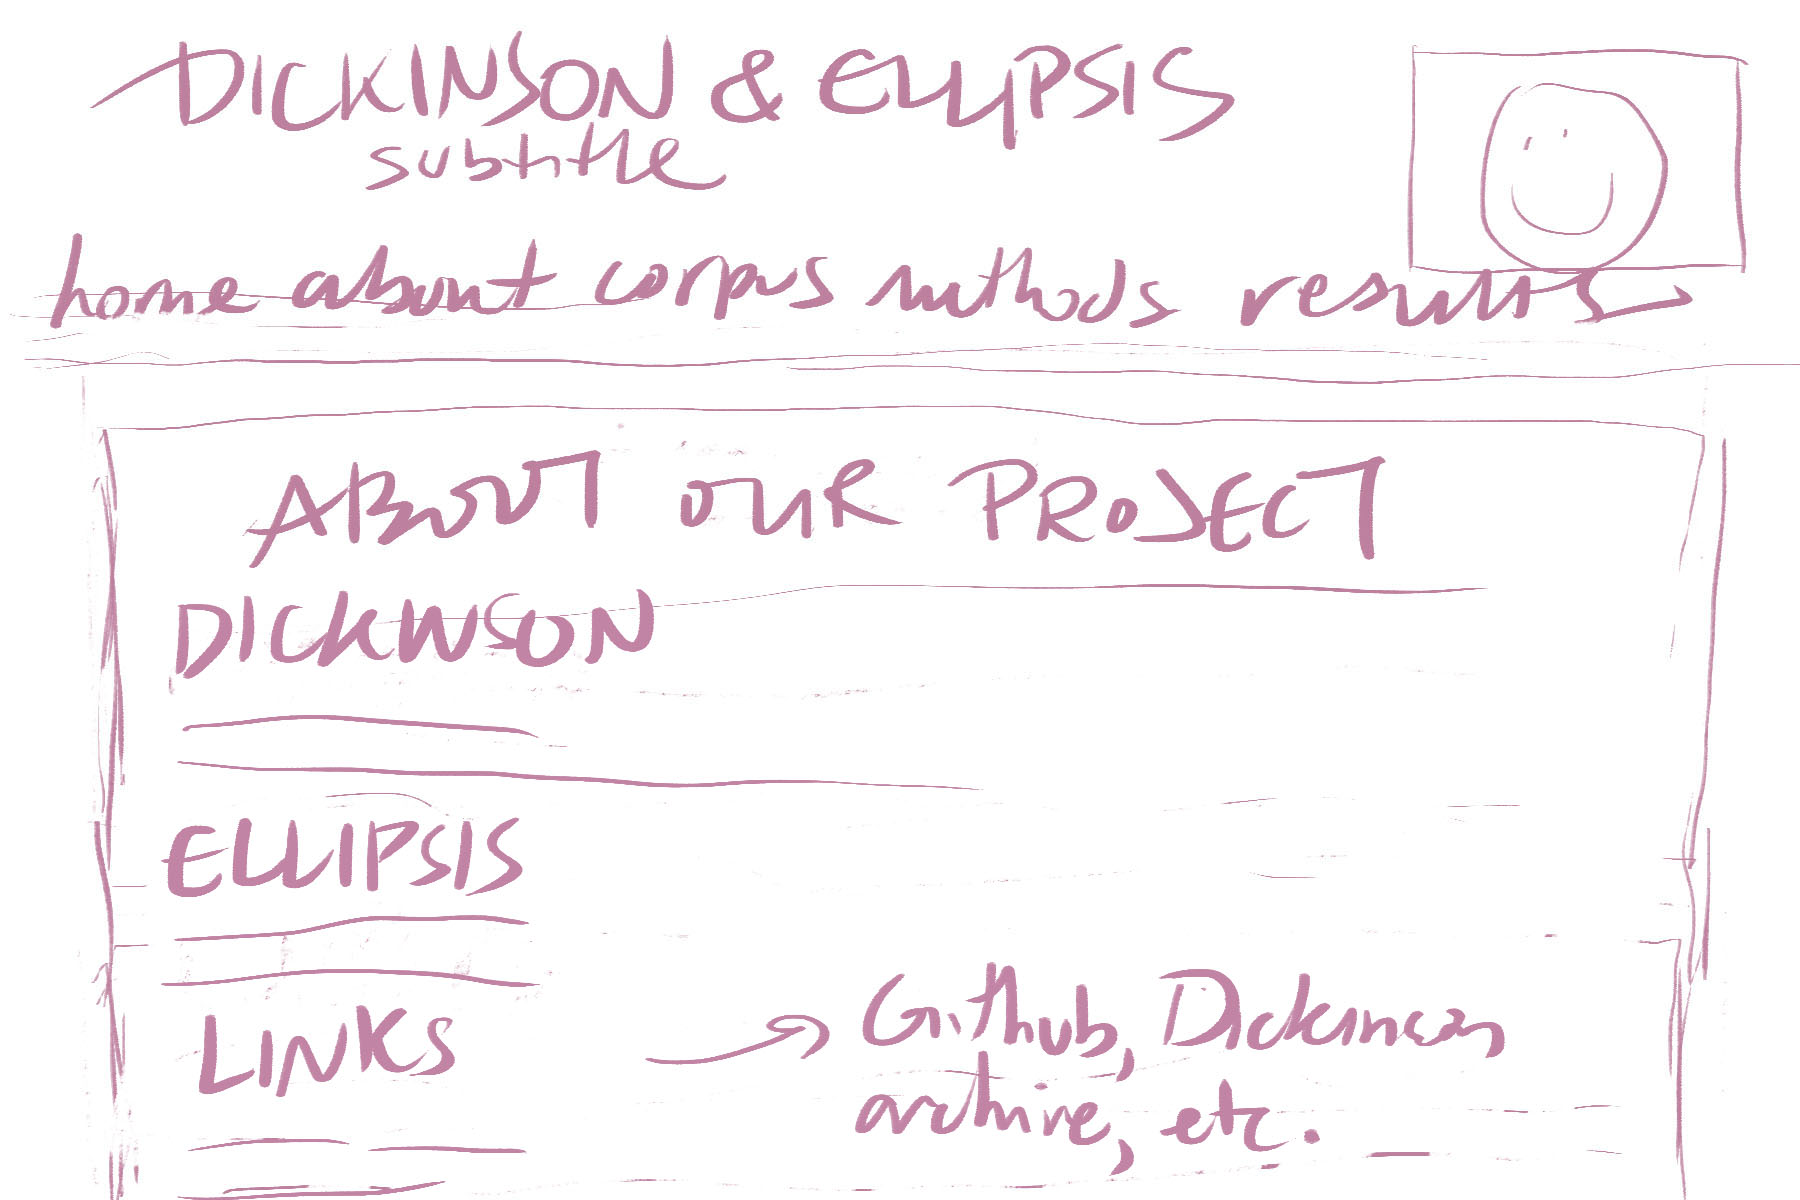 DICKINSON & ELLIPSIS
subtitle
home about corpus methods results
ABOUT OUR PROJECT
DICKINSON
ELLIPSIS
LINKS
Github, Dickinson
archive, etc.